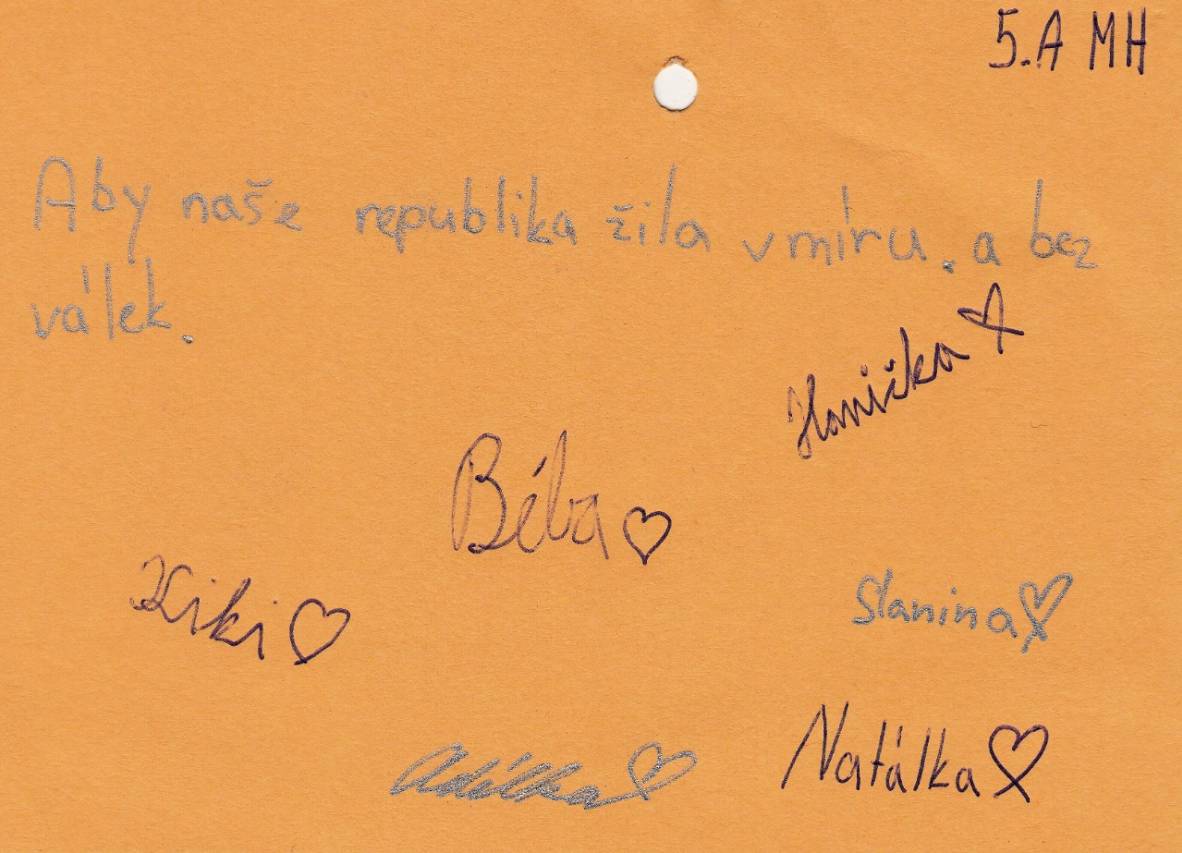 5.A MH
Aby naše republika žila v míru. a bez
válek.
Hanička
Béba
Kiki
Slanina
Adélka
Natálka